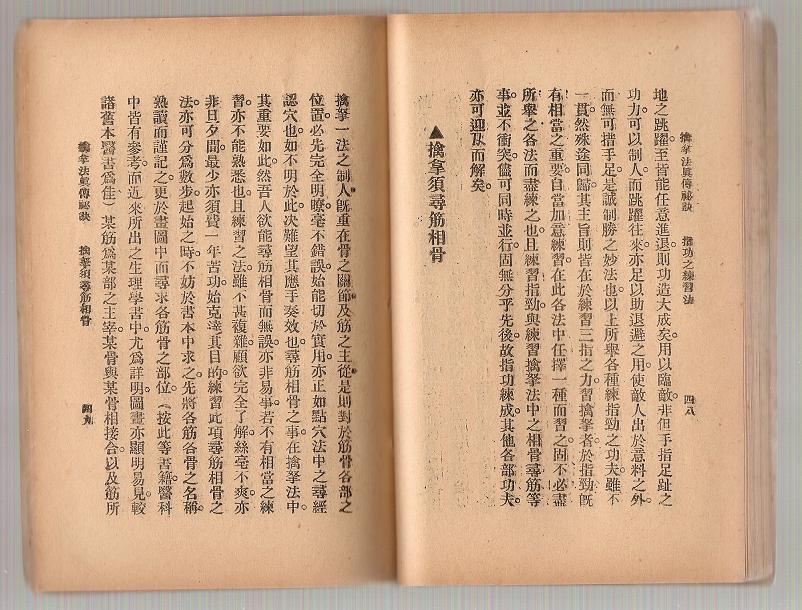 擒拿法真傳祕訣　指功之練習法　四八
地之跳躍至皆能任意進退則功造大成矣用以臨敵。非但手指足趾之
功力。可以制人而跳躍往來亦足以助退避之用使敵人出於意料之外。
而無可措手足是誠制勝之妙法也以上所舉各種練指勁之功夫雖不
一貫然殊途同歸。其主旨則皆在於練習三指之力習擒拏者於指勁既
有相當之重要自當加意練習在此各法中任擇一種而習之固不必盡
所舉之各法而盡練之也且練習指勁與練習擒拏法中之相骨尋筋等
事並不衝突儘可同時並行固無分乎先後。故指功練成其他各部功夫
亦可迎刄而解矣。
▲擒拿須尋筋相骨
擒拏一法之制人。既重在骨之關節及筋之主從是則對於筋骨各部之
位置。必先完全明瞭毫不錯誤。始能切於實用亦正如點穴法中之尋經
認穴也如不明於此決難望其應手奏效也尋筋相骨之事在擒拏法中。
其重要如此然吾人欲能尋筋相骨而無誤亦非易事若不有相當之練
習。亦不能熟悉也且練習之法。雖不甚複雜顧欲完全了解絲毫不爽亦
非旦夕間最少亦須費一年苦功始克達其目的練習此項尋筋相骨之
法亦可分爲數步起始之時不妨於書本中求之先將各筋各骨之名稱。
熟讀而謹記之。更於畫圖中而尋求各筋骨之部位（按此等書籍醫科
中皆有參考。而近來所出之生理學書中尤爲詳明。圖畫亦顯明易見較
諸舊本醫書爲佳）某筋爲某部之主宰某骨與某骨相接合。以及筋所
擒拿法眞傳祕訣　擒拏須尋筋相骨　四九